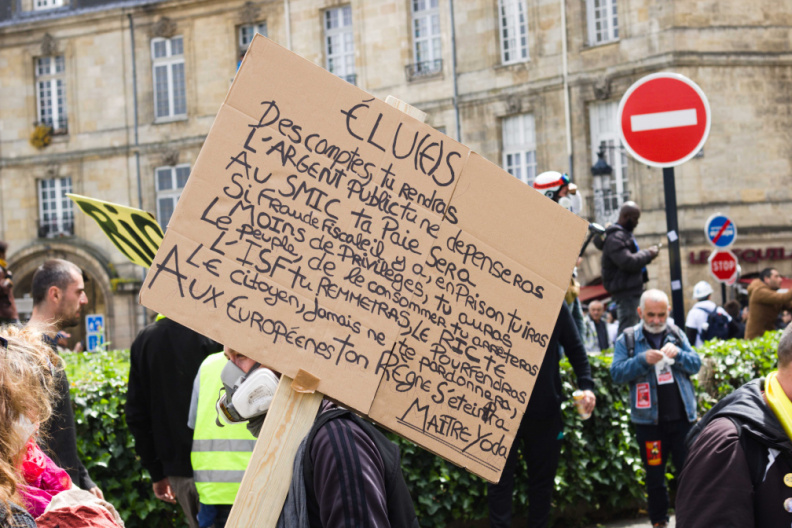 ÉLU(E)S
Des comptes, tu rendras
L'ARGENT Public tu ne dépenseras
AU SMIC ta Paie SERA
Si Fraude Fiscale il y a, en Prison tu iras
MOINS de PRiviléges, tu auras
Le peuple, de le consommer tu arrêteras
L'ISF tu REMMETRAS, le RIC TE
Le citoyen, Jamais ne le pourfendras
Aux EUROPÉENES ton RÈGNE S'éteindra
MAÎTRE Yoda
STOP